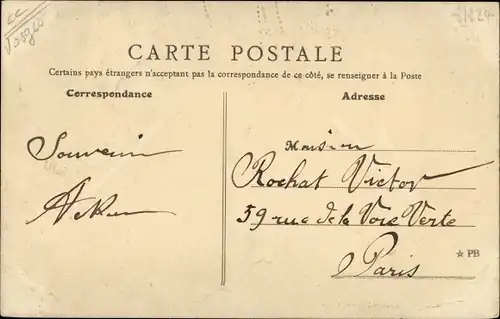 CARTE POSTALE
Certains pays étrangers n'acceptant pas la correspondance de ce côté, se renseigner à la Poste
Correspondance
Adresse
Souvenir
Monsieur
Rochat Victor
59 rue de la Voie Verte
Paris
☆ PB